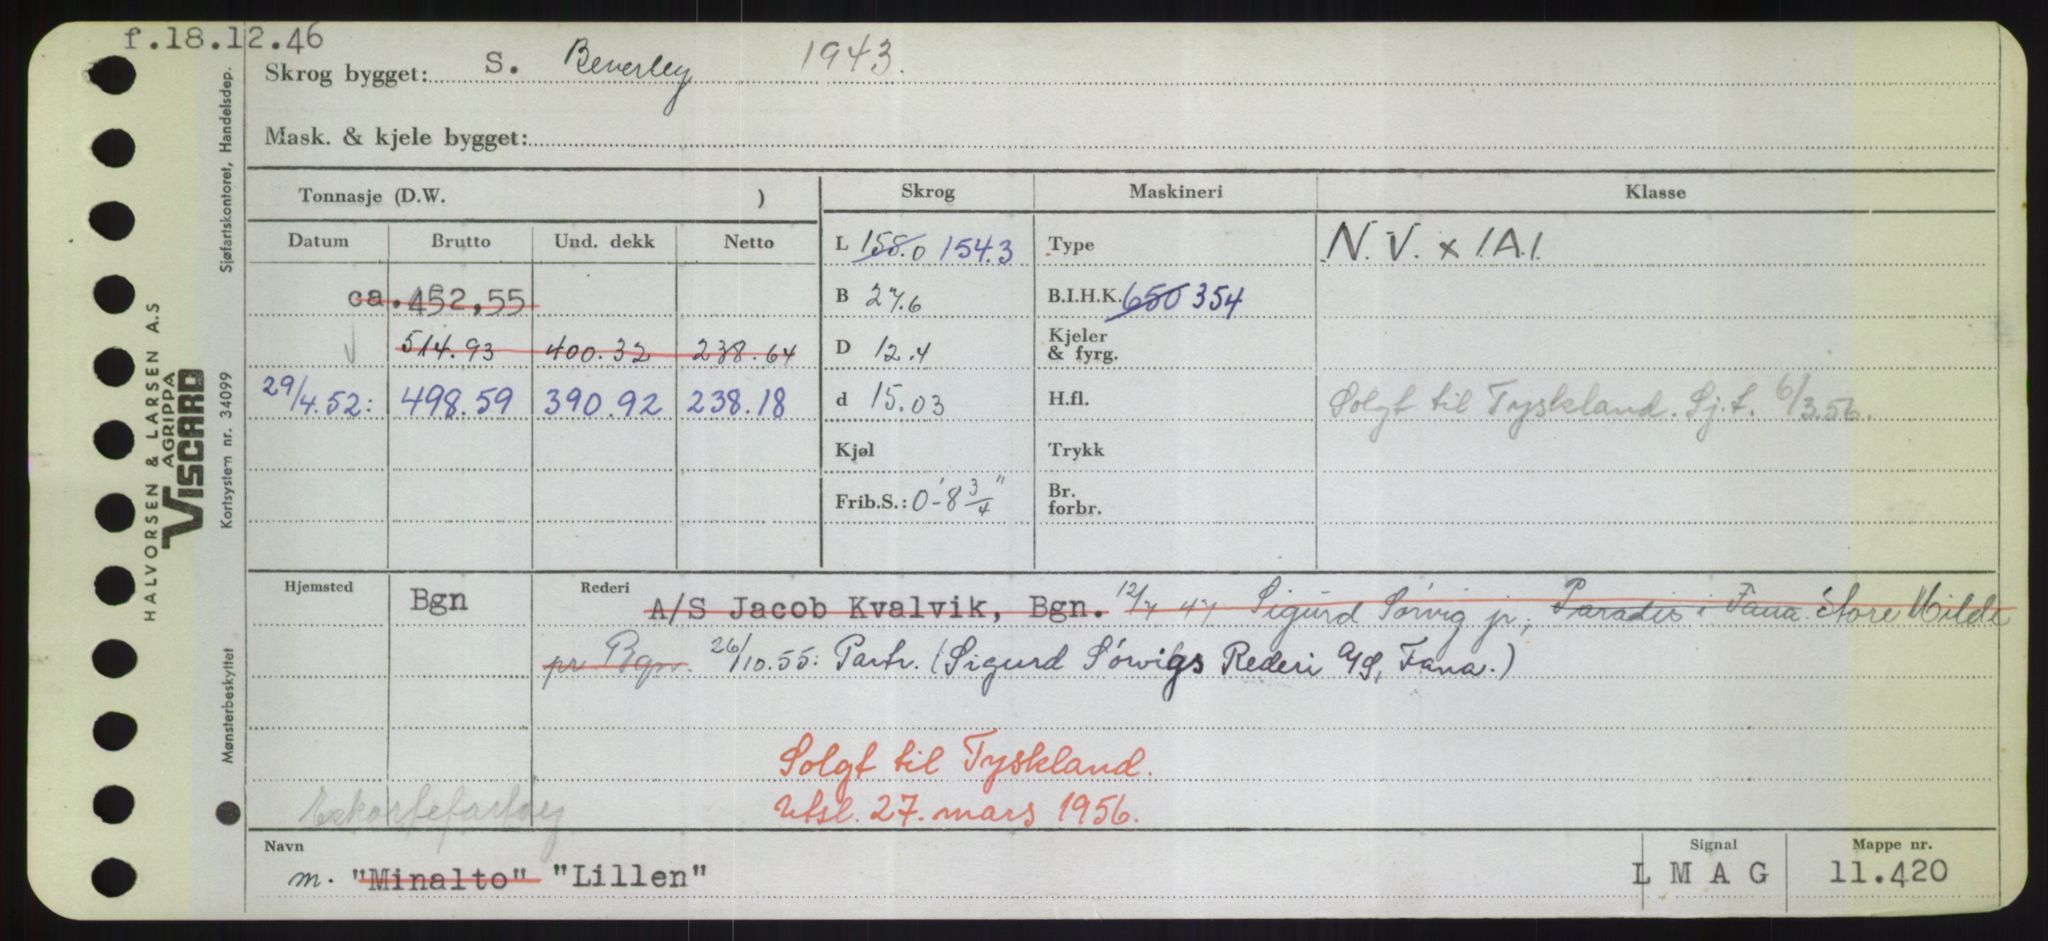 f.18.12.46
Skrog bygget: S. Beverley 1943.
Mask. & kjele bygget:
Tonnasje (D.W. ) Skrog Maskineri Klasse
Datum Brutto Und. dekk Netto
L 158.0 154.3 Type N.V. x 1.A.1.
ca. 452,55 B 27.6 B.I.H.K. 650 354
514.93 400.32 238.64 D 12.4 Kjeler & fyrg.
29/4.52: 498.59 390.92 238.18 d 15.03 H.fl. Solgt til Tyskland. Sj.t. 6/3.56.
Kjøl Trykk
Frib.S.: 0'-8 3/4" Br. forbr.
Hjemsted Bgn Rederi A/S Jacob Kvalvik, Bgn. 12/7 47 Sigurd Sørvig jr, Paradis i Fana. Store Milde
pr Bgn. 26/10.55: Partr. (Sigurd Sørvigs Rederi A/S, Fana.)
Solgt til Tyskland.
Eskortefartøy Utsl. 27. mars 1956.
Navn Signal Mappe nr.
m. "Minalto" "Lillen" L M A G 11.420
Sjøfartskontoret, Handelsdep.
Kortsystem nr. 34099
Mønsterbeskyttet
HALVORSEN & LARSEN A.S
AGRIPPA
VISCARD